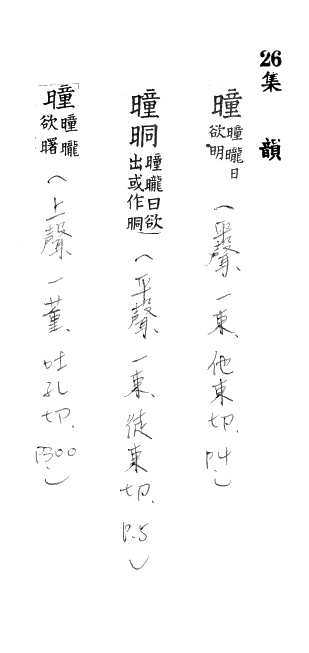 26集 韻
曈曈曨日欲明（平聲、一東、他東切、P.4。）
曈晍曈曨日欲出或作晍（平聲、一東、徒東切、P.5）
曈曈曨欲曙（上聲、一董、吐孔切、P300。）